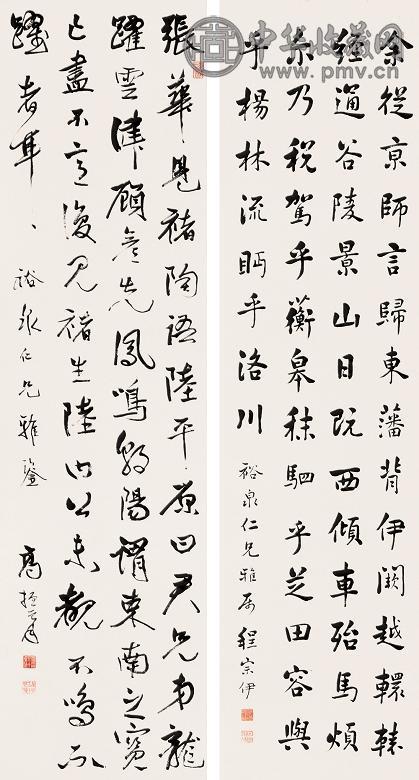 中华收藏网
www.pmv.cn
余從京師言歸東藩背伊闕越轘轅
經通谷陵景山日既西傾車殆馬煩
尔乃税駕乎蘅皋秣駟乎芝田容與
乎楊林流眄乎洛川
裕泉仁兄雅属 程宗伊
張華見褚陶語陸平原曰君兄弟龍
躍雲津顧彦先鳳鳴朝陽謂東南之寳
已盡不意復見褚生陸曰公未覩不鳴不
躍者耳
裕泉仁兄雅鑒
高振霄